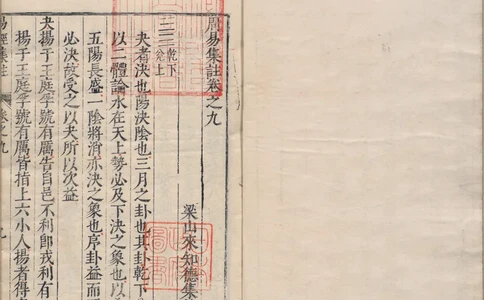 周易集註卷之九
梁山來知德集
乾下
兌上
夬者決也陽決陰也三月之卦也其卦乾下
以二體論水在天上勢必及下決之象也以
五陽長盛一陰將消亦決之象也序卦益而
必決故受之以夬所以次益
夬揚于王庭孚號有厲告自邑不利即戎利有
揚于王庭孚號有厲皆指上六小人揚者得
易經集註
卷之九
九